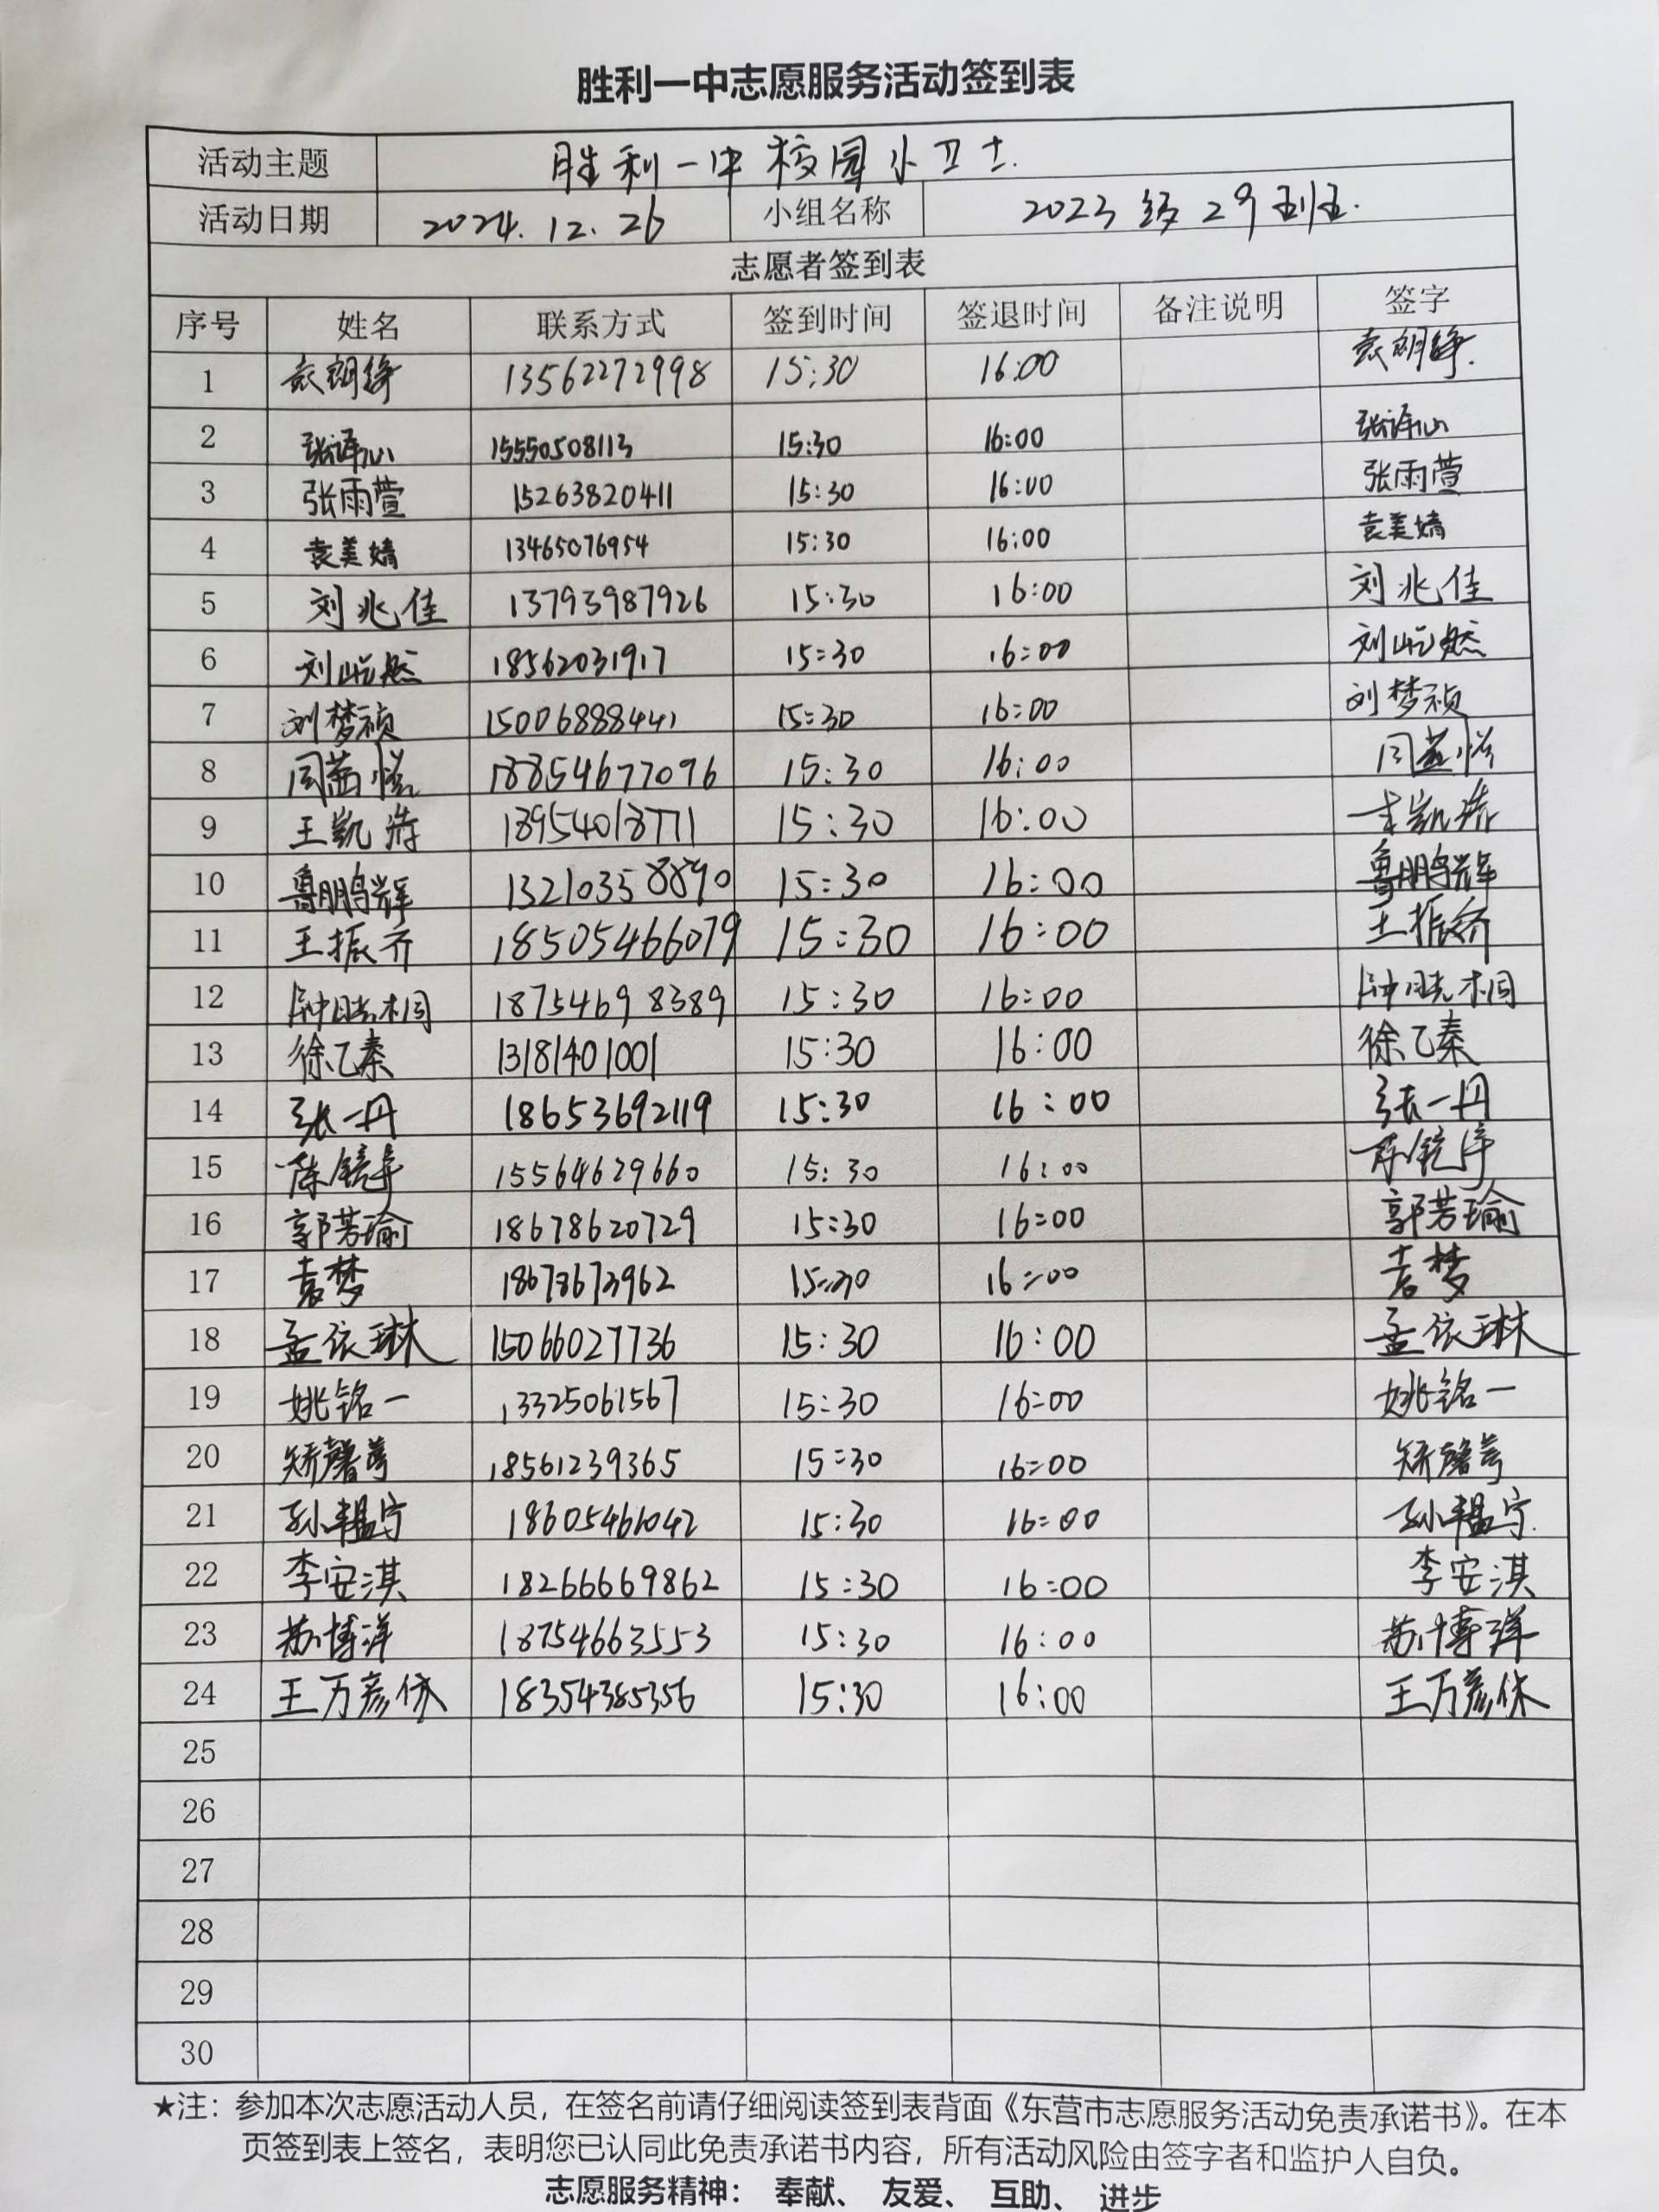 胜利一中志愿服务活动签到表
活动主题 胜利一中校园小卫士.
活动日期 2024.12.26 小组名称 2023级29班.
志愿者签到表
序号 姓名 联系方式 签到时间 签退时间 备注说明 签字
1 袁朗铮 13562272998 15:30 16:00 袁朗铮.
2 张译心 15550508113 15:30 16:00 张译心
3 张雨萱 15263820411 15:30 16:00 张雨萱
4 袁美婧 13465076954 15:30 16:00 袁美婧
5 刘兆佳 13793987926 15:30 16:00 刘兆佳
6 刘屹然 18562031917 15:30 16:00 刘屹然
7 刘梦祯 15006888441 15:30 16:00 刘梦祯
8 周 18854677096 15:30 16:00 周
9 王凯 18954018771 15:30 16:00 王凯
10 鲁鹏辉 13210358890 15:30 16:00 鲁鹏辉
11 王振乔 18505466079 15:30 16:00 王振乔
12 钟晓桐 18754698389 15:30 16:00 钟晓桐
13 徐乙秦 13181401001 15:30 16:00 徐乙秦
14 张一丹 18653692119 15:30 16:00 张一丹
15 陈镜 15564629660 15:30 16:00 陈镜
16 郭芳瑜 18678620729 15:30 16:00 郭芳瑜
17 袁梦 18678673962 15:30 16:00 袁梦
18 孟依琳 15066027736 15:30 16:00 孟依琳
19 姚铭一 13325061567 15:30 16:00 姚铭一
20 矫馨 18561239365 15:30 16:00 矫馨
21 孙韫宁 18605461042 15:30 16:00 孙韫宁.
22 李安淇 18266669862 15:30 16:00 李安淇
23 苏博洋 18754663553 15:30 16:00 苏博洋
24 王万彦休 18354385356 15:30 16:00 王万彦休
25
26
27
28
29
30
★注：参加本次志愿活动人员，在签名前请仔细阅读签到表背面《东营市志愿服务活动免责承诺书》。在本
页签到表上签名，表明您已认同此免责承诺书内容，所有活动风险由签字者和监护人自负。
志愿服务精神： 奉献、 友爱、 互助、 进步